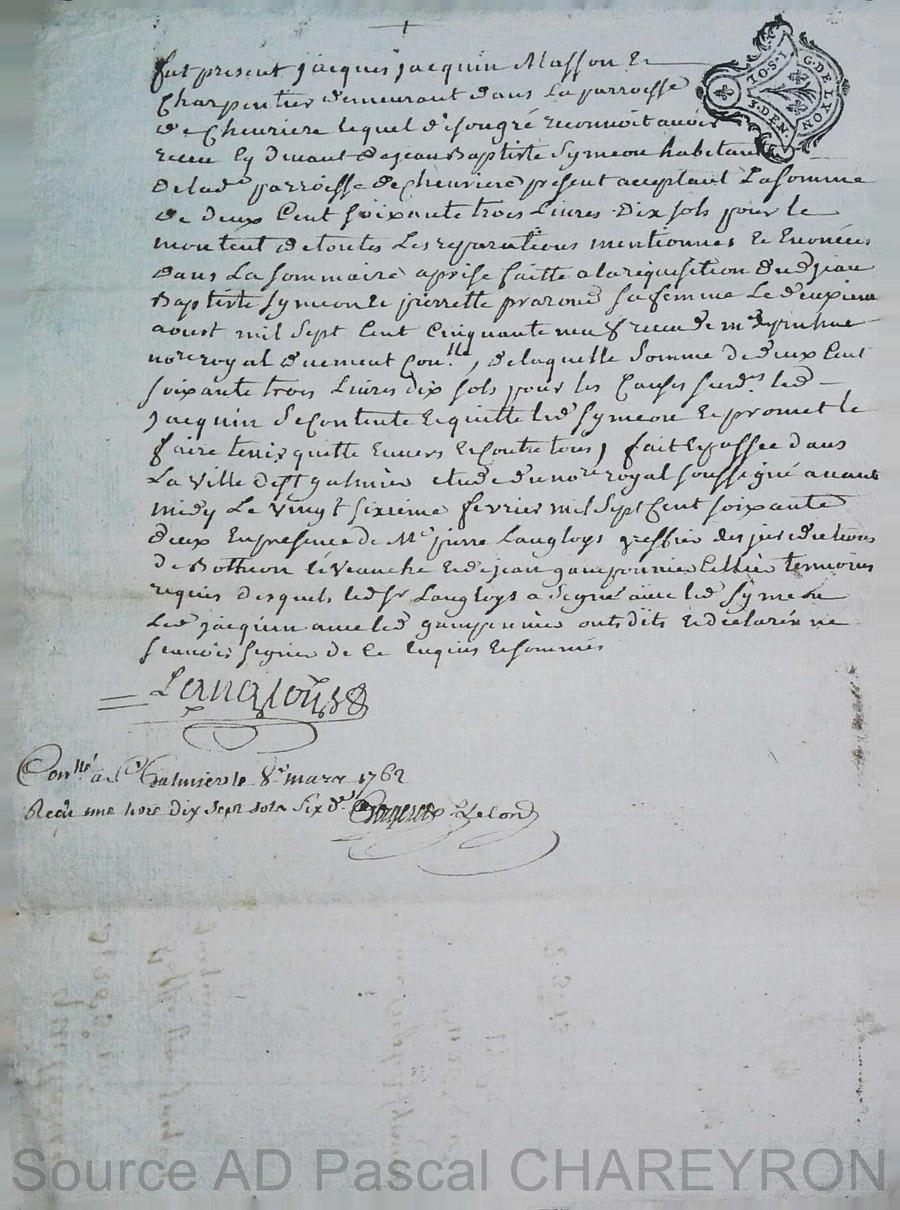 fut present jacques jacquin Masson Et
Charpentier demeurant dans La parroisse
de Chevriere lequel de son gré reconnoit avoir
receu Cy devant de jean Baptiste Symeon habitant
de lad. parroisse de Chevriere present acceptant La somme
de deux Cent soixante trois Livres dix sols pour le
montent de toutes Les reparations mentionnees Et Enoncées
dans La sommaire aprise faitte a la requisition dud jean
Baptiste Symeon Et pierrette prazond sa femme Le deuxieme
aoust mil sept Cent Cinquante neuf receu de me
nore royal duement Conllé, de laquelle somme de deux Cent
soixante trois Livres dix sols pour les Causes susdes led
jacquin se Contente Et quitte led Symeon Et promet le
faire tenir quitte Envers Et Contre tous, fait Et passée dans
La Ville de St galmier etude du nore royal soussigné avant
midy Le vingt sixieme fevrier mil sept Cent soixante
deux En presence de Me pierre Langloys greffier des jurisdictions
de Botheon Et Veauche Et de jean gamponnier temoins
requis desquels led Sr Langloys a signé avec led Symeon
Led jacquin avec led gamponnier ont dits Et declarés ne
scavoir signer de Ce Enquis Et sommés
Langloys
Conllé a St Galmier le 8e mars 1762
Reçu une livre dix sept sols six drs Lelond
G. DE LYON
IO. S. I
S. DEN.
Source AD Pascal CHAREYRON